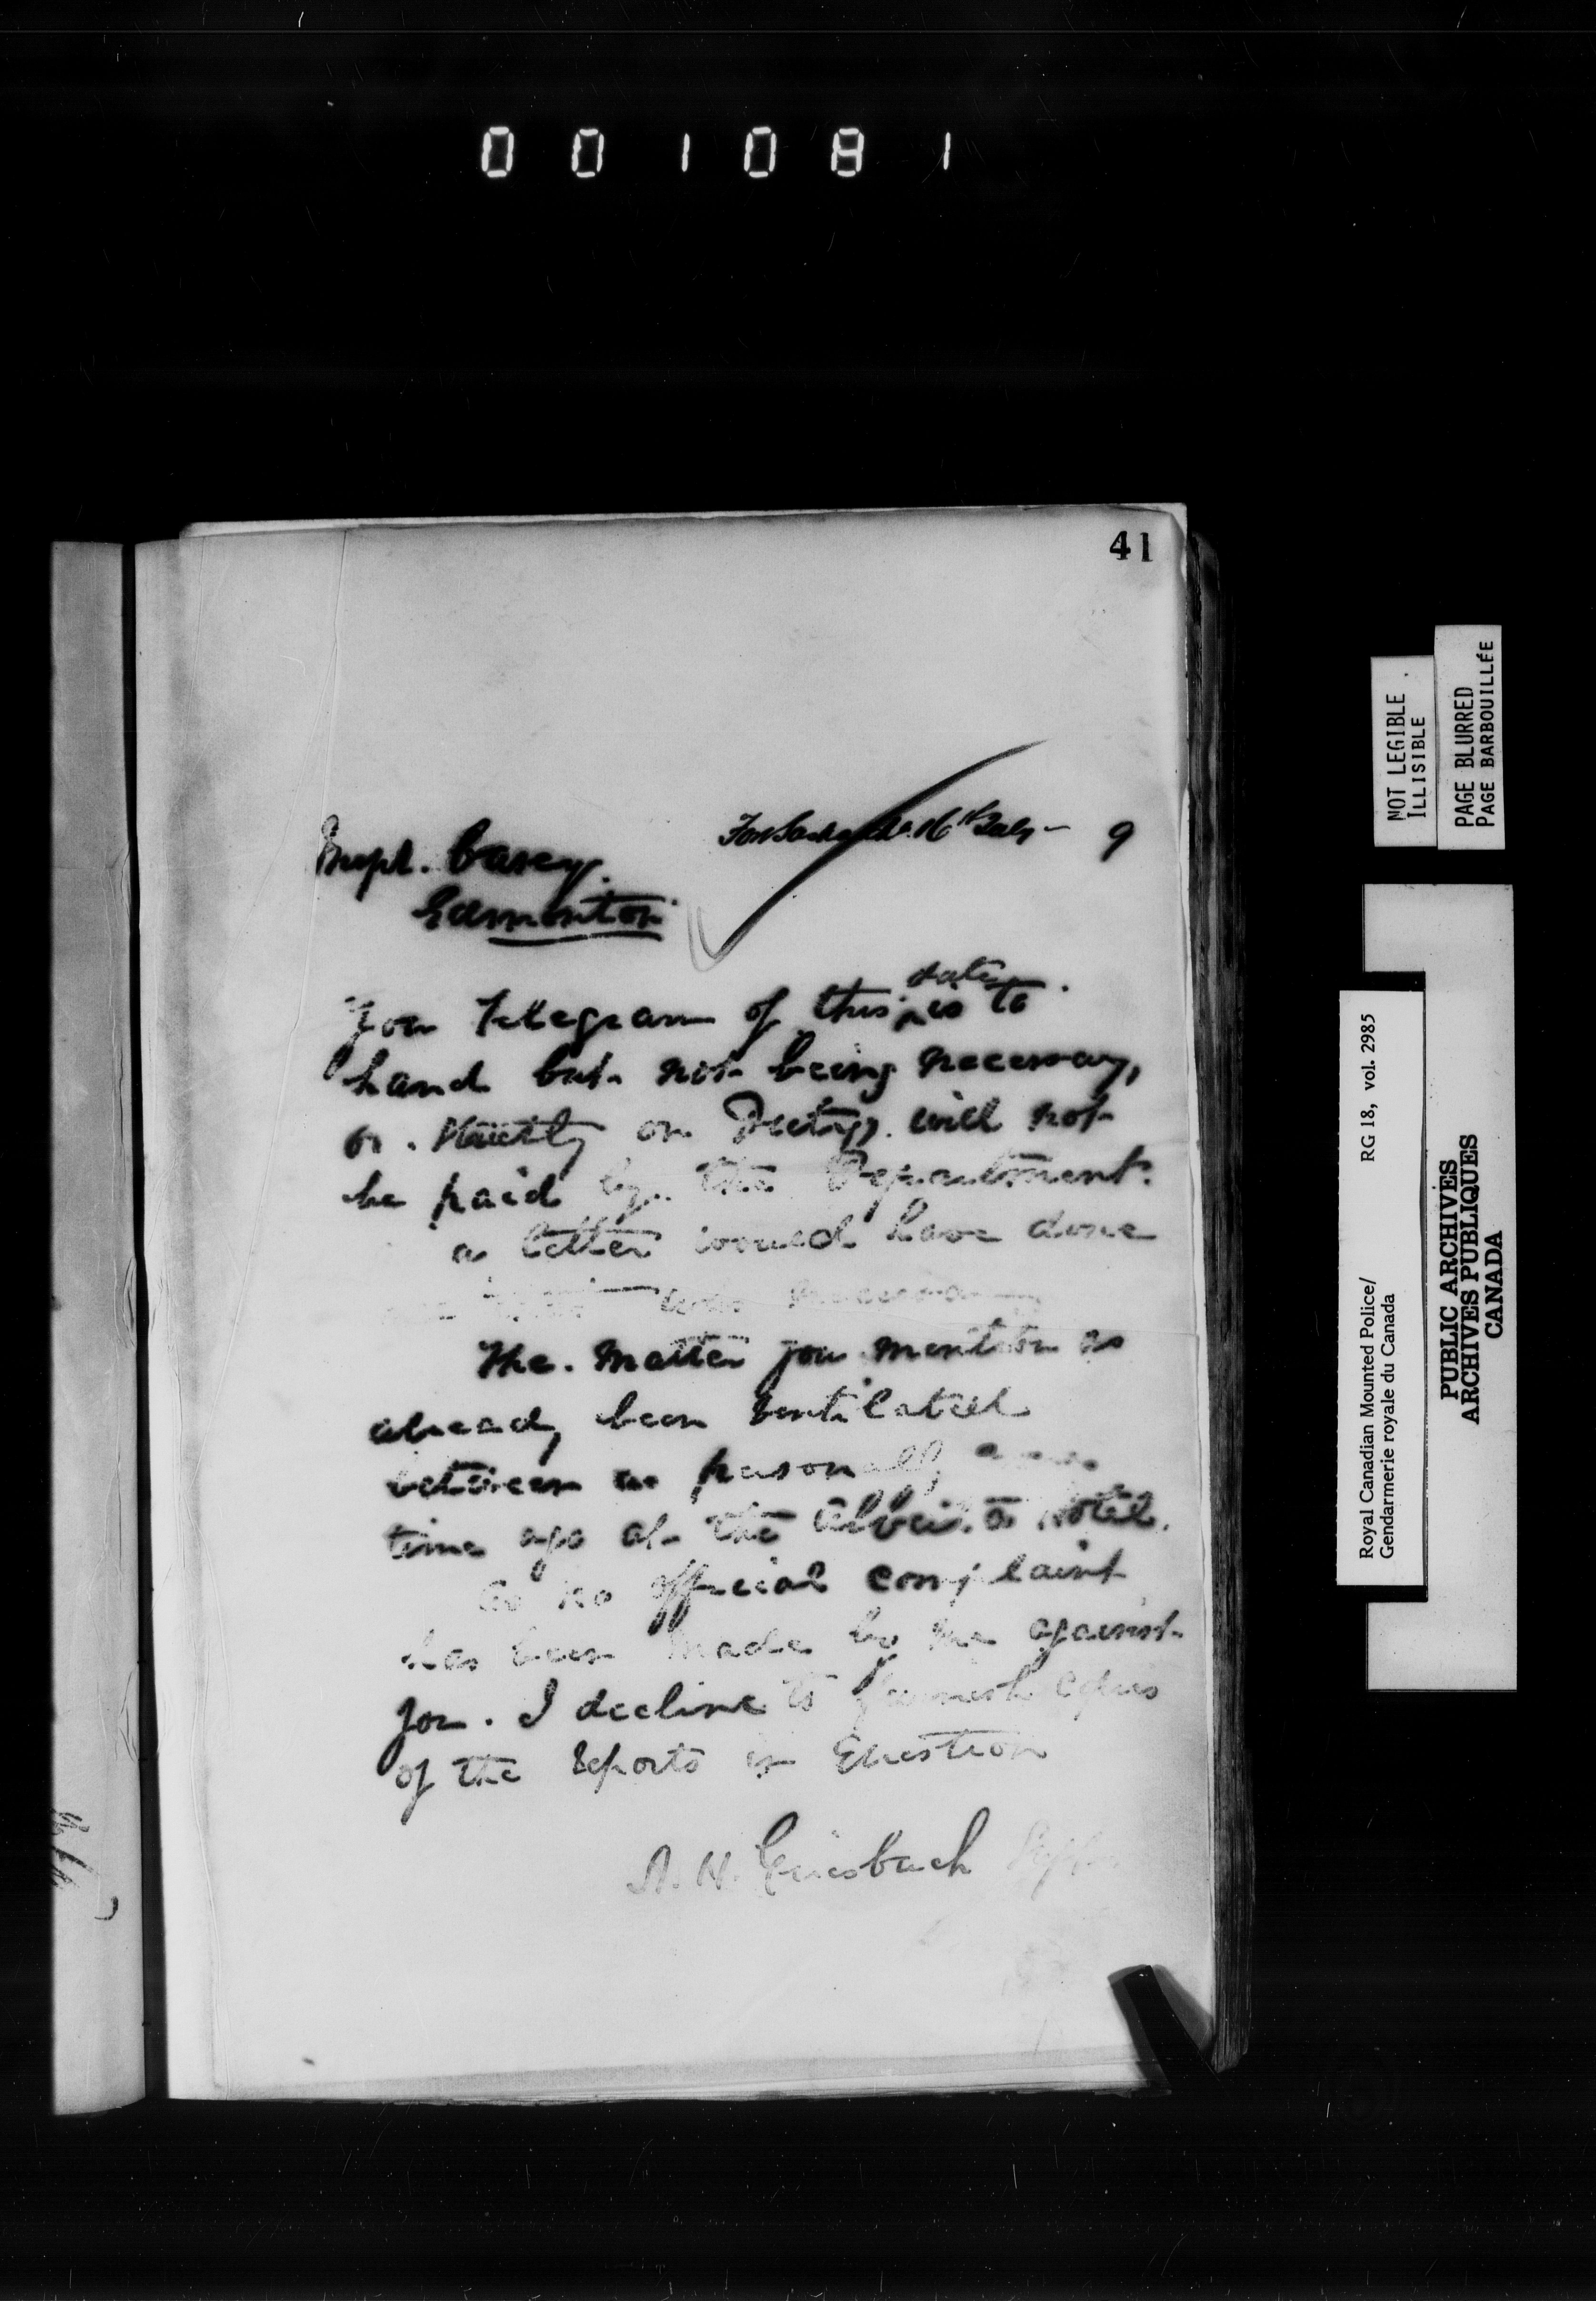 001081
41
Fort Sask. 16th July - 9
Inspt. Casey.
Edmonton
Your Telegram of this date is to
hand but not being necessary,
or. strictly on Duty. will not
be paid by the Department.
a letter would have done
was necessary
The matter you mention as
already been Ventilated
between us personally, a
time ago at the Alberta Hotel.
As no official complaint
has been made by me against
you. I decline to furnish copies
of the Reports in Question
A. H. Griesbach Supt
NOT LEGIBLE
ILLISIBLE
PAGE BLURRED
PAGE BARBOUILLÉE
Royal Canadian Mounted Police/ RG 18, vol. 2985
Gendarmerie royale du Canada
PUBLIC ARCHIVES
ARCHIVES PUBLIQUES
CANADA